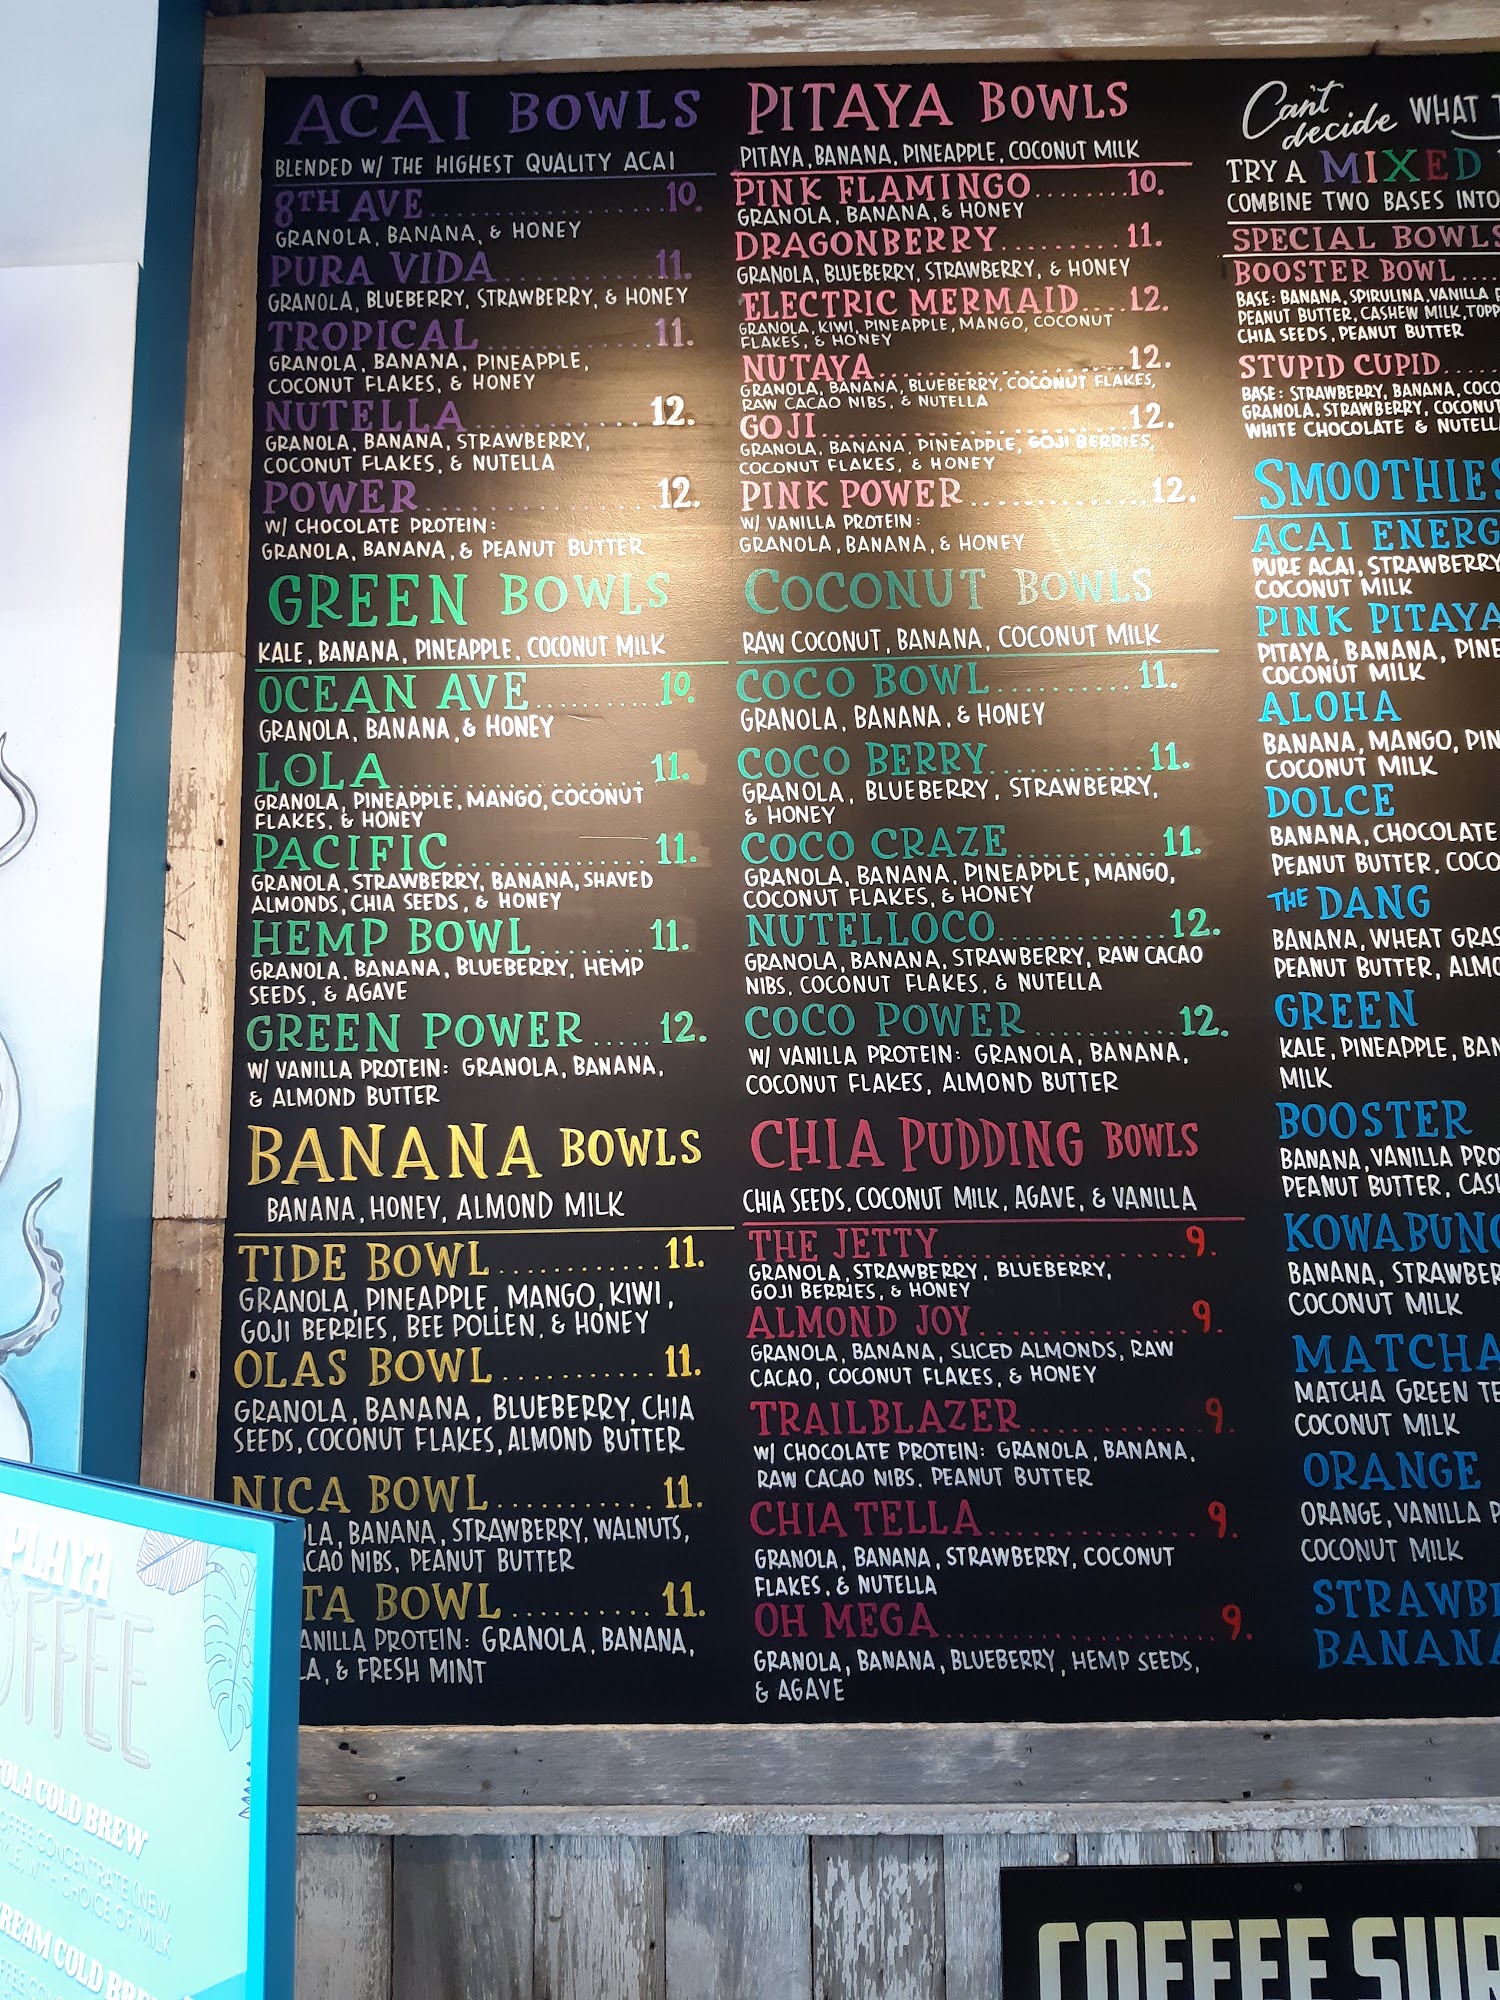 ACAI BOWLS
BLENDED W/ THE HIGHEST QUALITY ACAI
8TH AVE.......................10.
GRANOLA, BANANA, & HONEY
PURA VIDA...............11.
GRANOLA, BLUEBERRY, STRAWBERRY, & HONEY
TROPICAL.................11.
GRANOLA, BANANA, PINEAPPLE,
COCONUT FLAKES, & HONEY
NUTELLA..................12.
GRANOLA, BANANA, STRAWBERRY,
COCONUT FLAKES, & NUTELLA
POWER.....................12.
W/ CHOCOLATE PROTEIN:
GRANOLA, BANANA, & PEANUT BUTTER
GREEN BOWLS
KALE, BANANA, PINEAPPLE, COCONUT MILK
OCEAN AVE...........10.
GRANOLA, BANANA, & HONEY
LOLA......................11.
GRANOLA, PINEAPPLE, MANGO, COCONUT
FLAKES, & HONEY
PACIFIC.................11.
GRANOLA, STRAWBERRY, BANANA, SHAVED
ALMONDS, CHIA SEEDS, & HONEY
HEMP BOWL.......11.
GRANOLA, BANANA, BLUEBERRY, HEMP
SEEDS, & AGAVE
GREEN POWER.....12.
W/ VANILLA PROTEIN: GRANOLA, BANANA,
& ALMOND BUTTER
BANANA BOWLS
BANANA, HONEY, ALMOND MILK
TIDE BOWL............11.
GRANOLA, PINEAPPLE, MANGO, KIWI,
GOJI BERRIES, BEE POLLEN, & HONEY
OLAS BOWL............11.
GRANOLA, BANANA, BLUEBERRY, CHIA
SEEDS, COCONUT FLAKES, ALMOND BUTTER
NICA BOWL............11.
LA, BANANA, STRAWBERRY, WALNUTS,
CAO NIBS, PEANUT BUTTER
TA BOWL...........11.
ANILLA PROTEIN: GRANOLA, BANANA,
LA, & FRESH MINT
PITAYA BOWLS
PITAYA, BANANA, PINEAPPLE, COCONUT MILK
PINK FLAMINGO........10.
GRANOLA, BANANA, & HONEY
DRAGONBERRY.........11.
GRANOLA, BLUEBERRY, STRAWBERRY, & HONEY
ELECTRIC MERMAID....12.
GRANOLA, KIWI, PINEAPPLE, MANGO, COCONUT
FLAKES, & HONEY
NUTAYA....................12.
GRANOLA, BANANA, BLUEBERRY, COCONUT FLAKES,
RAW CACAO NIBS, & NUTELLA
GOJI..........................12.
GRANOLA, BANANA, PINEAPPLE, GOJI BERRIES,
COCONUT FLAKES, & HONEY
PINK POWER..............12.
W/ VANILLA PROTEIN:
GRANOLA, BANANA, & HONEY
COCONUT BOWLS
RAW COCONUT, BANANA, COCONUT MILK
COCO BOWL..........11.
GRANOLA, BANANA, & HONEY
COCO BERRY............11.
GRANOLA, BLUEBERRY, STRAWBERRY,
& HONEY
COCO CRAZE...........11.
GRANOLA, BANANA, PINEAPPLE, MANGO,
COCONUT FLAKES, & HONEY
NUTELLOCO.............12.
GRANOLA, BANANA, STRAWBERRY, RAW CACAO
NIBS, COCONUT FLAKES, & NUTELLA
COCO POWER...........12.
W/ VANILLA PROTEIN: GRANOLA, BANANA,
COCONUT FLAKES, ALMOND BUTTER
CHIA PUDDING BOWLS
CHIA SEEDS, COCONUT MILK, AGAVE, & VANILLA
THE JETTY..................9.
GRANOLA, STRAWBERRY, BLUEBERRY,
GOJI BERRIES, & HONEY
ALMOND JOY...............9.
GRANOLA, BANANA, SLICED ALMONDS, RAW
CACAO, COCONUT FLAKES, & HONEY
TRAILBLAZER.............9.
W/ CHOCOLATE PROTEIN: GRANOLA, BANANA,
RAW CACAO NIBS, PEANUT BUTTER
CHIA TELLA...............9.
GRANOLA, BANANA, STRAWBERRY, COCONUT
FLAKES, & NUTELLA
OH MEGA....................9.
GRANOLA, BANANA, BLUEBERRY, HEMP SEEDS,
& AGAVE
Can't decide WHAT T
TRY A MIXED
COMBINE TWO BASES INTO
SPECIAL BOWLS
BOOSTER BOWL....
BASE: BANANA, SPIRULINA, VANILLA
PEANUT BUTTER, CASHEW MILK, TOPP
CHIA SEEDS, PEANUT BUTTER
STUPID CUPID.....
BASE: STRAWBERRY, BANANA, COCO
GRANOLA, STRAWBERRY, COCONUT
WHITE CHOCOLATE & NUTELL
SMOOTHIES
ACAI ENERG
PURE ACAI, STRAWBERRY
COCONUT MILK
PINK PITAYA
PITAYA, BANANA, PINE
COCONUT MILK
ALOHA
BANANA, MANGO, PIN
COCONUT MILK
DOLCE
BANANA, CHOCOLATE
PEANUT BUTTER, COCO
THE DANG
BANANA, WHEAT GRAS
PEANUT BUTTER, ALMO
GREEN
KALE, PINEAPPLE, BAN
MILK
BOOSTER
BANANA, VANILLA PRO
PEANUT BUTTER, CAS
KOWABUNG
BANANA, STRAWBER
COCONUT MILK
MATCHA
MATCHA GREEN TE
COCONUT MILK
ORANGE
ORANGE, VANILLA P
COCONUT MILK
STRAWB
BANANA
PLAYA
OFFEE
OLA COLD BREW
OFFEE CONCENTRATE (NEW
YLE, WITH CHOICE OF MILK
REAM COLD BRE
COFFEE SUR